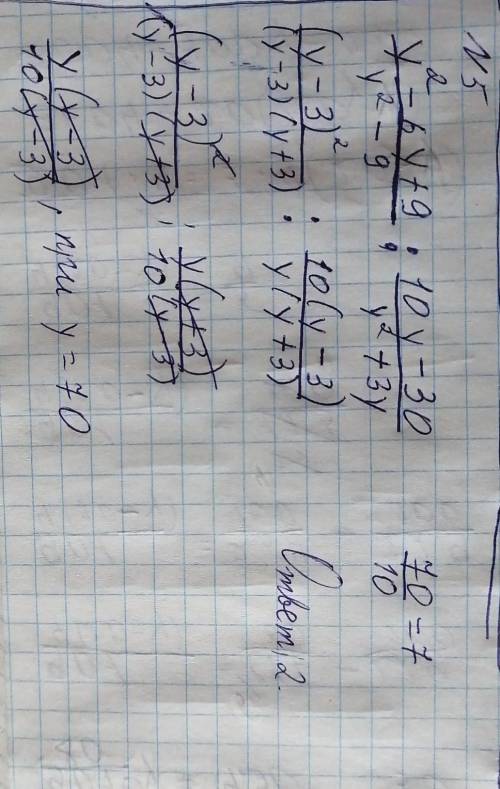 N5
y² - 6y + 9 / y² - 9 : 10y - 30 / y² + 3y
(y - 3)² / (y - 3)(y + 3) : 10(y - 3) / y(y + 3)
(y - 3)² / (y - 3)(y + 3) · y(y + 3) / 10(y - 3)
y(y - 3) / 10(y - 3), при y = 70
70 / 10 = 7
Ответ, 2.